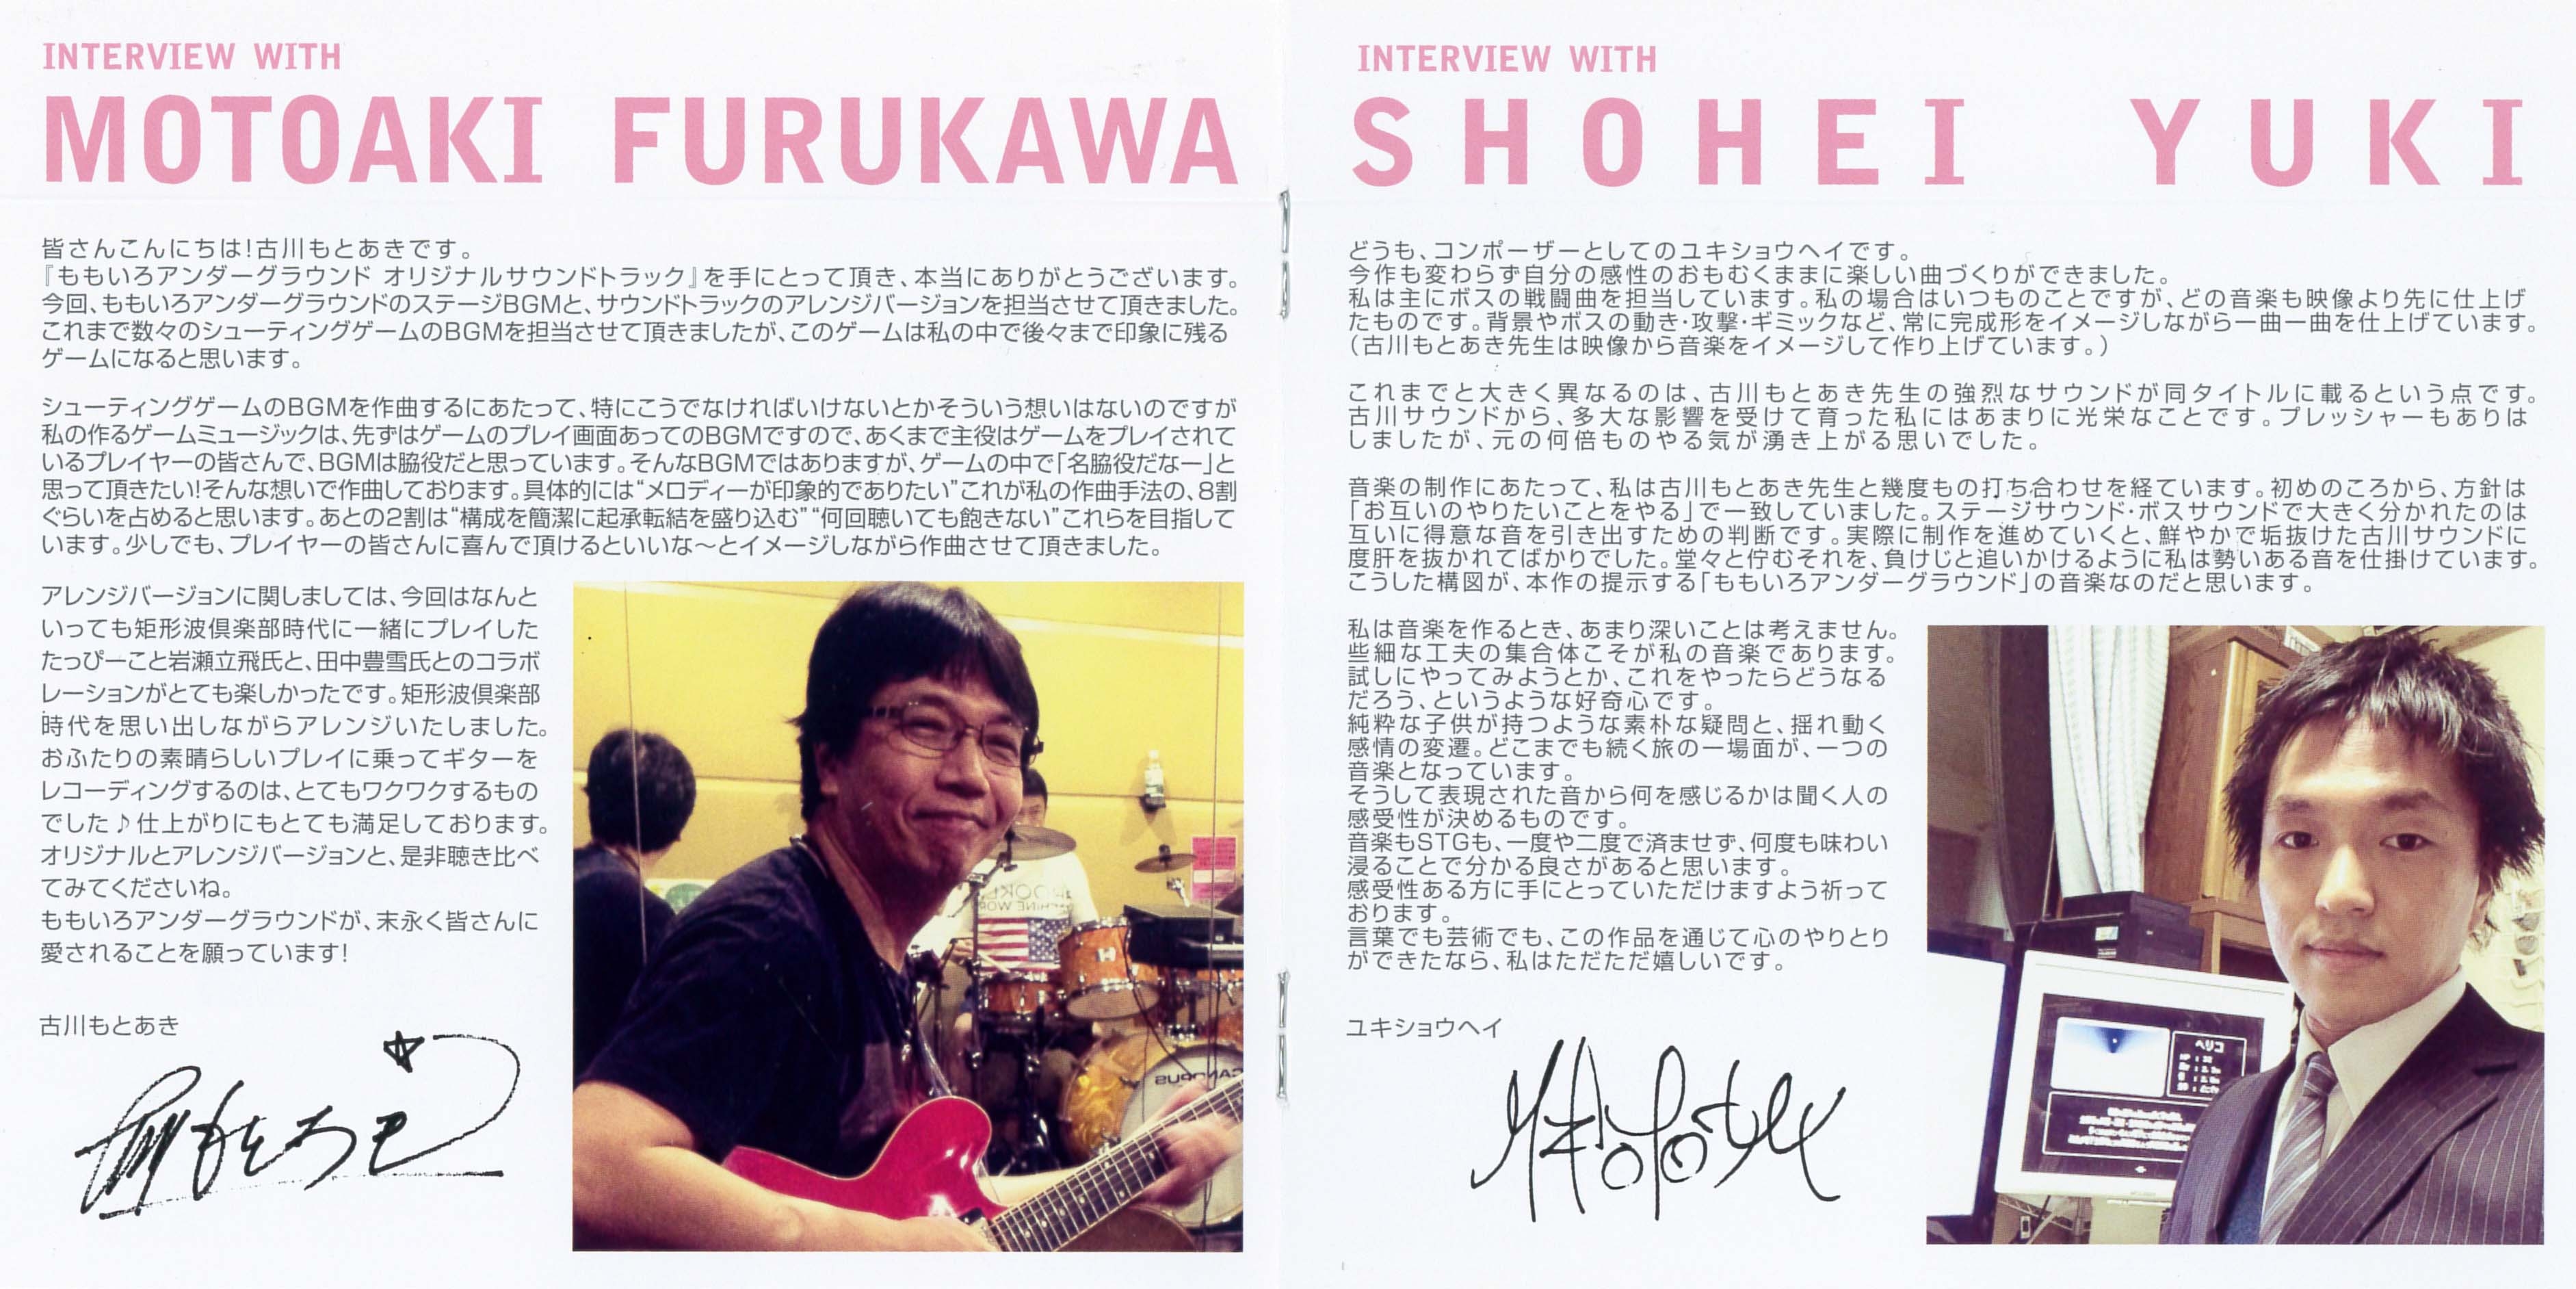 INTERVIEW WITH
MOTOAKI FURUKAWA
皆さんこんにちは!古川もとあきです。
『ももいろアンダーグラウンド オリジナルサウンドトラック』を手にとって頂き、本当にありがとうございます。
今回、ももいろアンダーグラウンドのステージBGMと、サウンドトラックのアレンジバージョンを担当させて頂きました。
これまで数々のシューティングゲームのBGMを担当させて頂きましたが、このゲームは私の中で後々まで印象に残る
ゲームになると思います。
シューティングゲームのBGMを作曲するにあたって、特にこうでなければいけないとかそういう想いはないのですが
私の作るゲームミュージックは、先ずはゲームのプレイ画面あってのBGMですので、あくまで主役はゲームをプレイされて
いるプレイヤーの皆さんで、BGMは脇役だと思っています。そんなBGMではありますが、ゲームの中で「名脇役だなー」と
思って頂きたい!そんな想いで作曲しております。具体的には“メロディーが印象的でありたい”これが私の作曲手法の、8割
ぐらいを占めると思います。あとの2割は“構成を簡潔に起承転結を盛り込む”“何回聴いても飽きない”これらを目指して
います。少しでも、プレイヤーの皆さんに喜んで頂けるといいな～とイメージしながら作曲させて頂きました。
アレンジバージョンに関しましては、今回はなんと
いっても矩形波倶楽部時代に一緒にプレイした
たっぴーこと岩瀬立飛氏と、田中豊雪氏とのコラボ
レーションがとても楽しかったです。矩形波倶楽部
時代を思い出しながらアレンジいたしました。
おふたりの素晴らしいプレイに乗ってギターを
レコーディングするのは、とてもワクワクするもの
でした♪仕上がりにもとても満足しております。
オリジナルとアレンジバージョンと、是非聴き比べ
てみてくださいね。
ももいろアンダーグラウンドが、末永く皆さんに
愛されることを願っています!
古川もとあき
古川もとあき
INTERVIEW WITH
SHOHEI YUKI
どうも、コンポーザーとしてのユキショウヘイです。
今作も変わらず自分の感性のおもむくままに楽しい曲づくりができました。
私は主にボスの戦闘曲を担当しています。私の場合はいつものことですが、どの音楽も映像より先に仕上げ
たものです。背景やボスの動き・攻撃・ギミックなど、常に完成形をイメージしながら一曲一曲を仕上げています。
（古川もとあき先生は映像から音楽をイメージして作り上げています。）
これまでと大きく異なるのは、古川もとあき先生の強烈なサウンドが同タイトルに載るという点です。
古川サウンドから、多大な影響を受けて育った私にはあまりに光栄なことです。プレッシャーもありは
しましたが、元の何倍ものやる気が湧き上がる思いでした。
音楽の制作にあたって、私は古川もとあき先生と幾度もの打ち合わせを経ています。初めのころから、方針は
「お互いのやりたいことをやる」で一致していました。ステージサウンド・ボスサウンドで大きく分かれたのは
互いに得意な音を引き出すための判断です。実際に制作を進めていくと、鮮やかで垢抜けた古川サウンドに
度肝を抜かれてばかりでした。堂々と佇むそれを、負けじと追いかけるように私は勢いある音を仕掛けています。
こうした構図が、本作の提示する「ももいろアンダーグラウンド」の音楽なのだと思います。
私は音楽を作るとき、あまり深いことは考えません。
些細な工夫の集合体こそが私の音楽であります。
試しにやってみようとか、これをやったらどうなる
だろう、というような好奇心です。
純粋な子供が持つような素朴な疑問と、揺れ動く
感情の変遷。どこまでも続く旅の一場面が、一つの
音楽となっています。
そうして表現された音から何を感じるかは聞く人の
感受性が決めるものです。
音楽もSTGも、一度や二度で済ませず、何度も味わい
浸ることで分かる良さがあると思います。
感受性ある方に手にとっていただけますよう祈って
おります。
言葉でも芸術でも、この作品を通じて心のやりとり
ができたなら、私はただただ嬉しいです。
ユキショウヘイ
ヘリコ